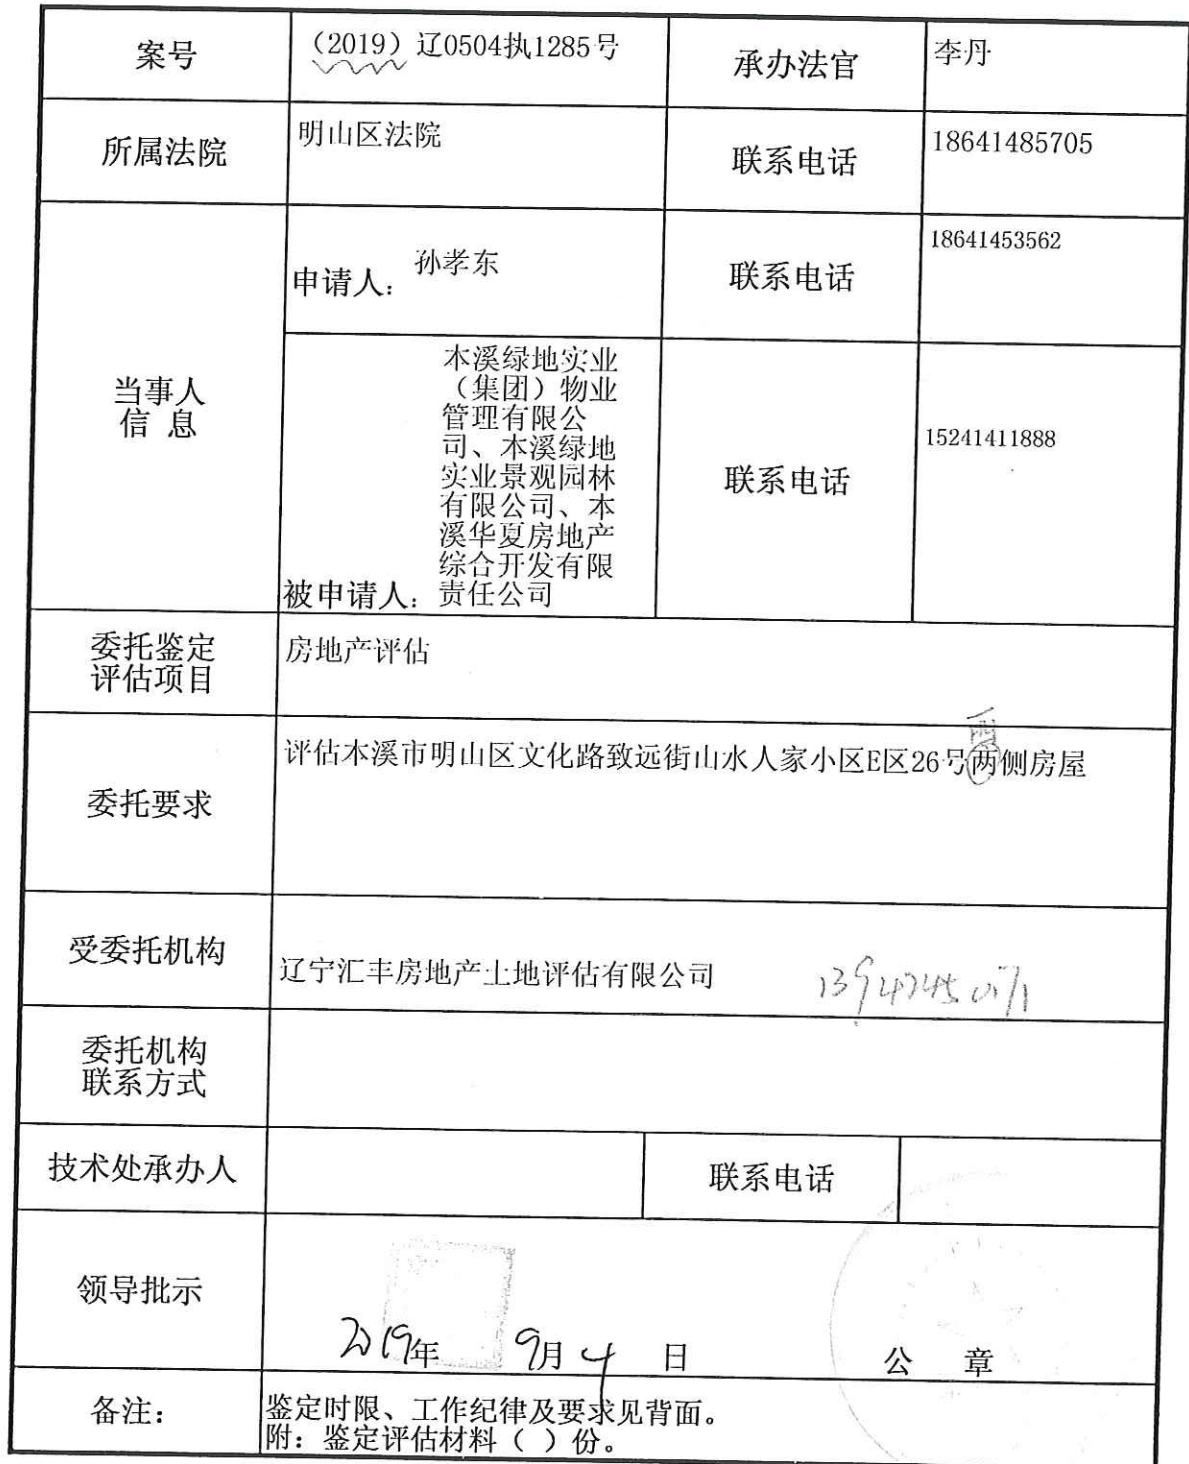 案号 （2019）辽0504执1285号 承办法官 李丹
所属法院 明山区法院 联系电话 18641485705
当事人
信 息
申请人： 孙孝东 联系电话 18641453562
本溪绿地实业
（集团）物业
管理有限公
司、本溪绿地
实业景观园林
有限公司、本
溪华夏房地产
综合开发有限
被申请人：责任公司
联系电话 15241411888
委托鉴定
评估项目
房地产评估
委托要求
评估本溪市明山区文化路致远街山水人家小区E区26号两侧房屋
受委托机构 辽宁汇丰房地产土地评估有限公司
委托机构
联系方式
技术处承办人 联系电话
领导批示
2019年 9月4日 公 章
备注：
鉴定时限、工作纪律及要求见背面。
附：鉴定评估材料（ ）份。